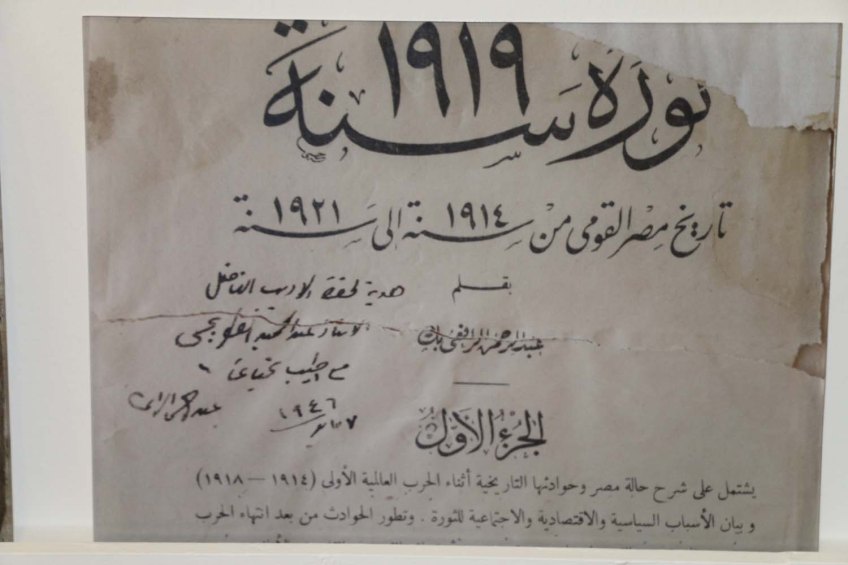 ثورة سنة ١٩١٩
تاريخ مصر القومى من سنة ١٩١٤ الى سنة ١٩٢١
بقلم
عبد الرحمن الرافعى بك
هدية لحضرة الاديب الفاضل
الاستاذ عبد الحميد
مع اطيب تحياتى
عبد الرحمن الرافعى
٧ مايو ١٩٤٦
الجزء الأول
يشتمل على شرح حالة مصر وحوادثها التاريخية أثناء الحرب العالمية الأولى (١٩١٤ — ١٩١٨)
وبيان الأسباب السياسية والاقتصادية والاجتماعية للثورة . وتطور الحوادث من بعد انتهاء الحرب